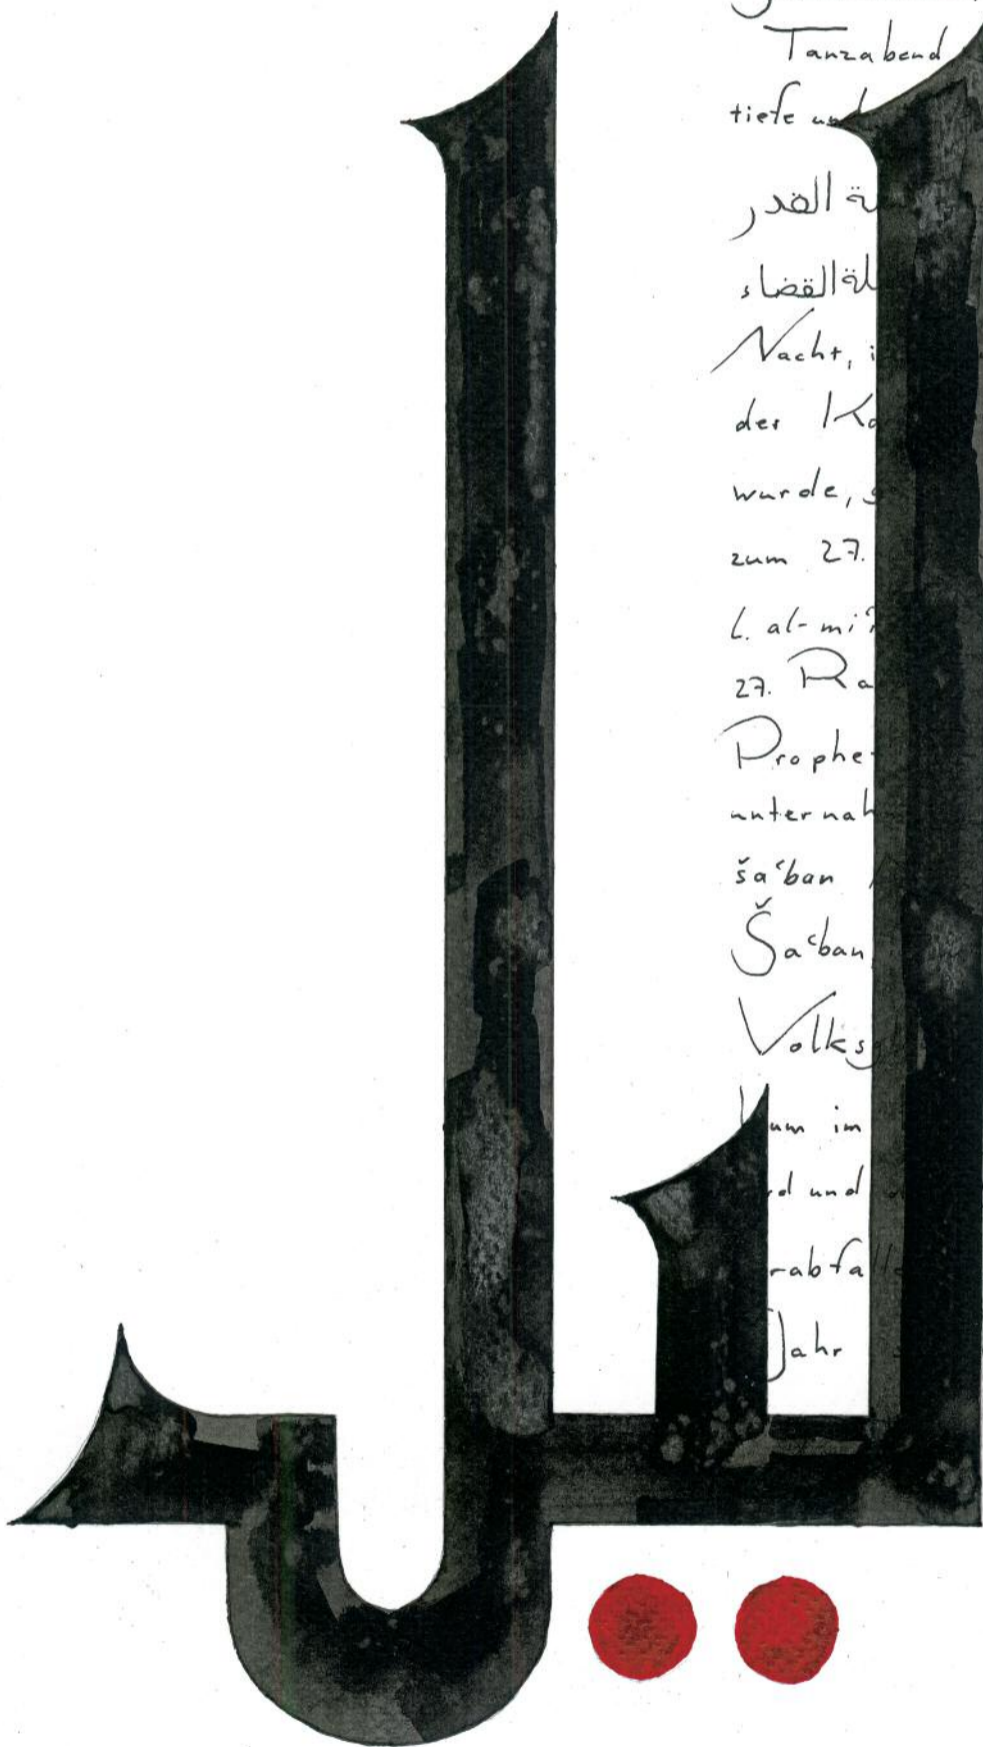 Tanzabend
tiefe und
لة القدر
لة القضاء
Nacht, i
der Ko
wurde, g
zum 27.
L. al-miʿ
27. Ra
Prophe
unternah
šaʿban
Šaʿban
Volksg
um im
rd und
rabfalle
Jahr
ليل